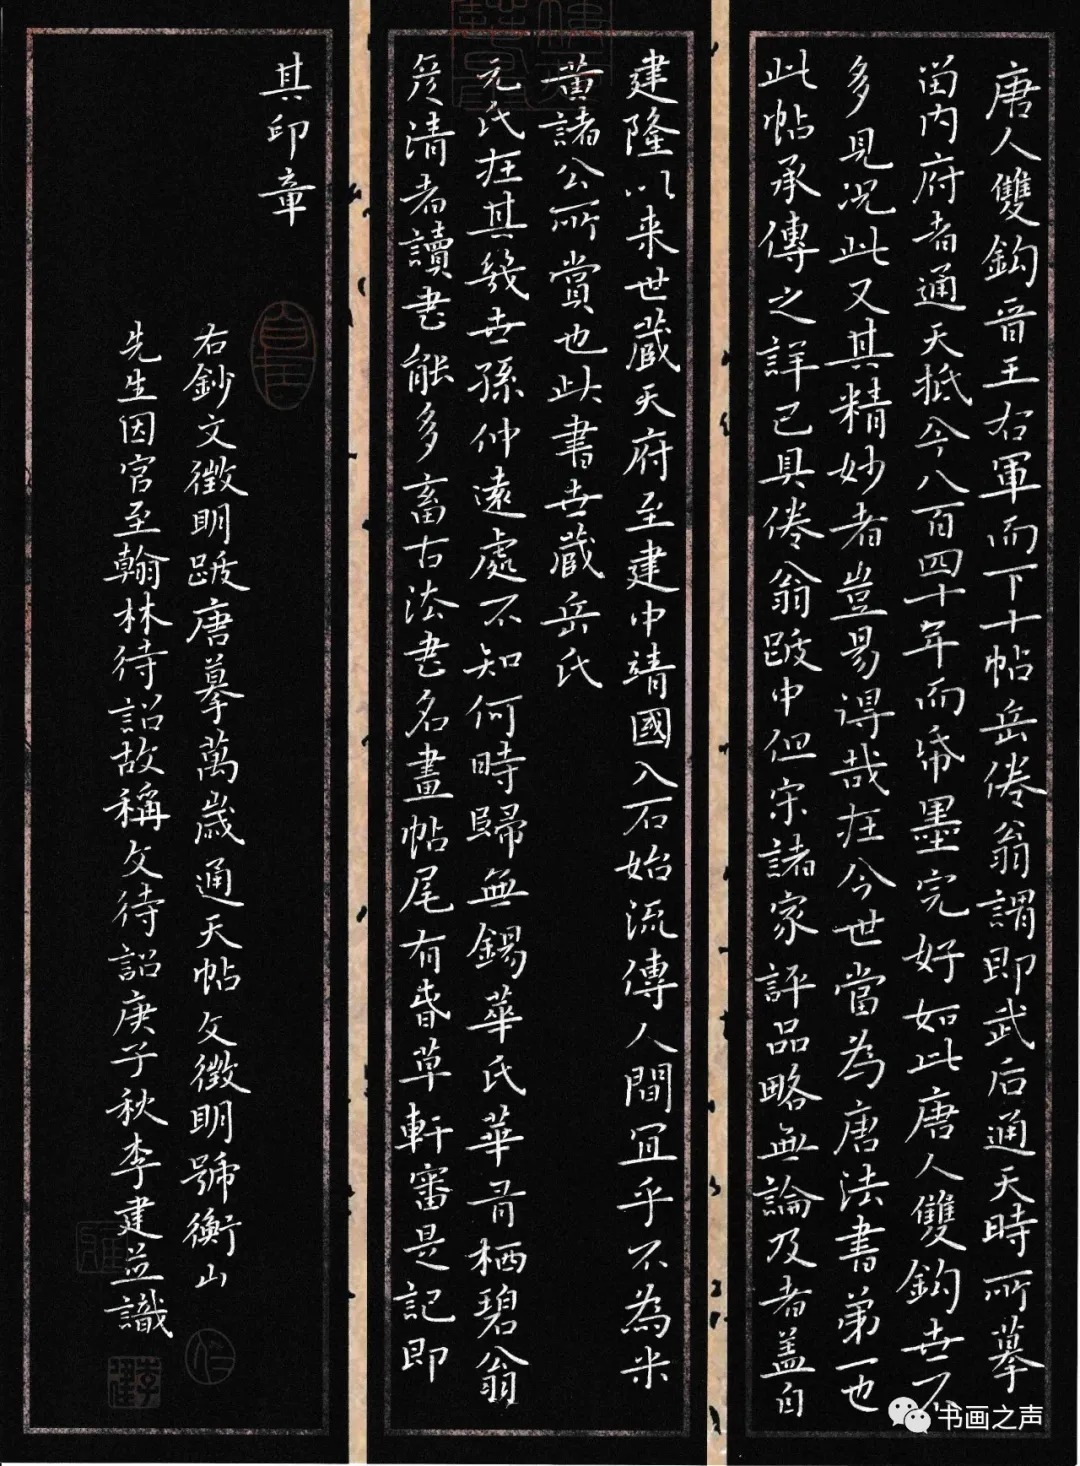 唐人雙鈎晉王右軍而下十帖岳倦翁謂即武后通天時所摹
留内府者通天抵今八百四十年而帋墨完好如此唐人雙鈎世不
多見况此又其精妙者豈易得哉在今世當為唐法書第一也
此帖承傳之詳已具倦翁跋中但宋諸家評品略無論及者盖自
建隆以来世蔵天府至建中靖國入石始流傳人間宜乎不為米
黄諸公所賞也此書世蔵岳氏
元氏在其幾世孫仲遠處不知何時歸無錫華氏華有栖碧翁
彦清者讀書能多畜古法書名畫帖尾有春草軒審是記即
其印章
右鈔文徵明跋唐摹萬嵗通天帖文徵明號衡山
先生因官至翰林待詔故稱文待詔庚子秋李建並識
书画之声